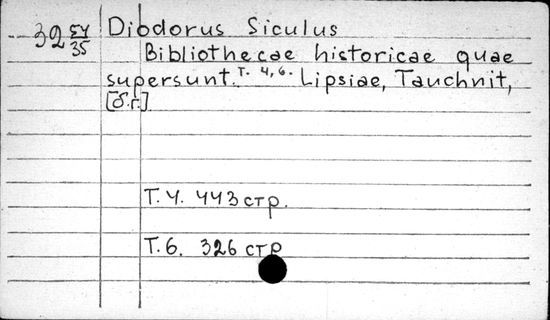 39 54/35 Diodorus Siculus
Bibliothecae historicae quae
supersunt. Т. 4,6. Lipsiae, Tauchnit,
[б.г.]
Т. 4. 443 стр.
Т. 6. 326 стр